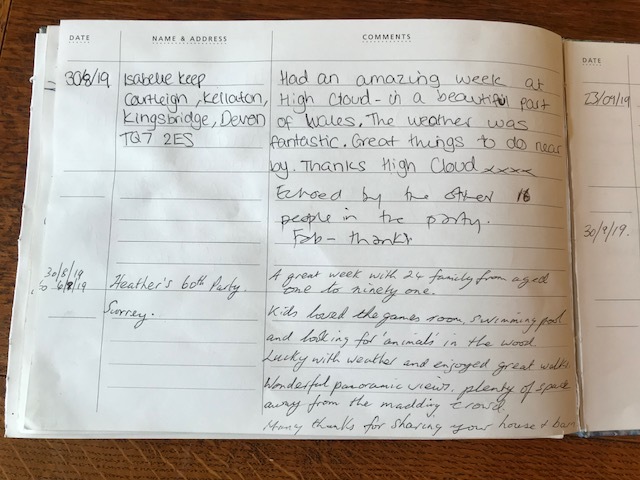 DATE NAME & ADDRESS COMMENTS
30/8/19 Isabelle Keep Had an amazing week at
Courtleigh, Kellaton, High Cloud - in a beautiful part
Kingsbridge, Devon of Wales. The weather was
TQ7 2ES fantastic. Great things to do near
by. Thanks High Cloud xxxx
Echoed by the other 16
people in the party.
Fab - thanks
30/8/19 A great week with 24 family from aged
to 6/9/19 Heather's 60th Party one to ninety one.
Surrey. Kids loved the games room, swimming pool
and looking for 'animals' in the wood.
Lucky with weather and enjoyed great walks.
Wonderful panoramic views, plenty of space
away from the madding crowd.
Many thanks for sharing your house & barn
DATE
23/09/19
30/9/19.